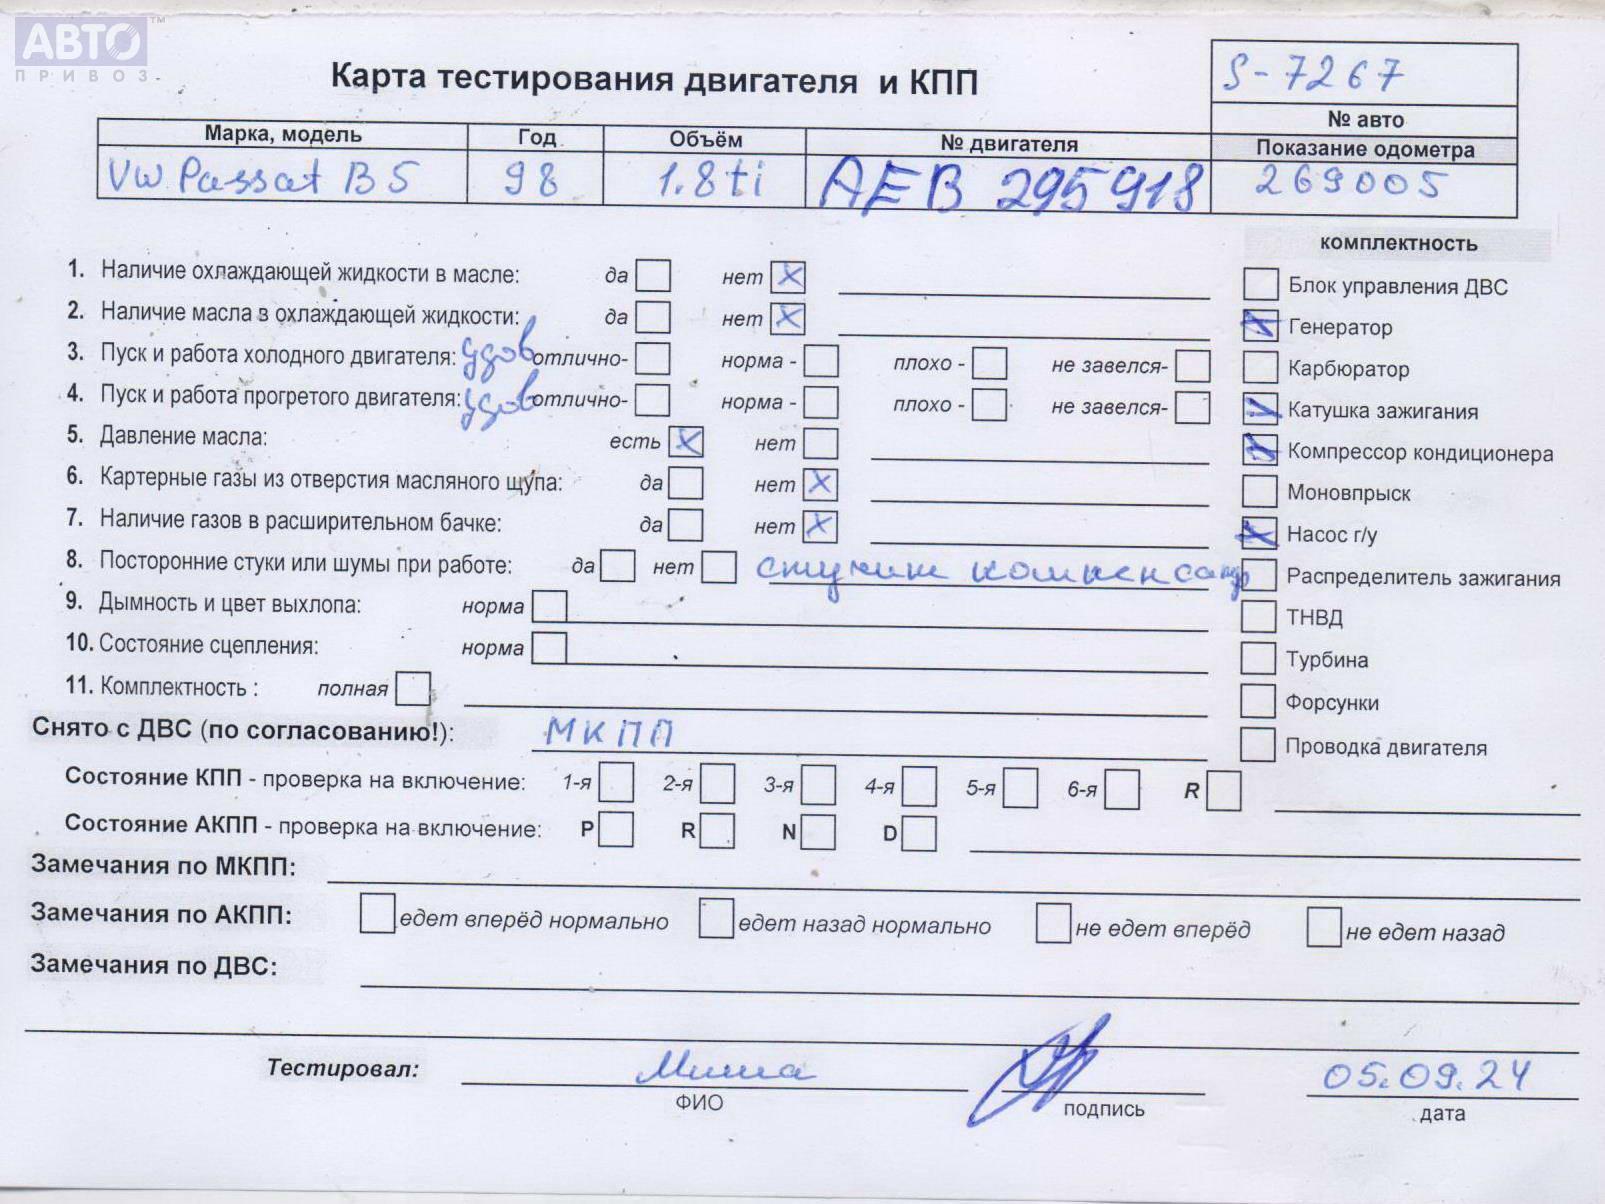 АВТО™
ПРИВОЗ
Карта тестирования двигателя и КПП
S-7267
№ авто
Марка, модель Год Объём № двигателя Показание одометра
VW Passat B5 98 1.8ti AEB 295918 269005
комплектность
1. Наличие охлаждающей жидкости в масле: да нет X
2. Наличие масла в охлаждающей жидкости: да нет X
3. Пуск и работа холодного двигателя: удов отлично- норма - плохо - не завелся-
4. Пуск и работа прогретого двигателя: удов отлично- норма - плохо - не завелся-
5. Давление масла: есть X нет
6. Картерные газы из отверстия масляного щупа: да нет X
7. Наличие газов в расширительном бачке: да нет X
8. Посторонние стуки или шумы при работе: да нет стучит
9. Дымность и цвет выхлопа: норма
10. Состояние сцепления: норма
11. Комплектность : полная
Блок управления ДВС
X Генератор
Карбюратор
X Катушка зажигания
X Компрессор кондиционера
Моновпрыск
X Насос г/у
Распределитель зажигания
ТНВД
Турбина
Форсунки
Проводка двигателя
Снято с ДВС (по согласованию!): МКПП
Состояние КПП - проверка на включение: 1-я 2-я 3-я 4-я 5-я 6-я R
Состояние АКПП - проверка на включение: P R N D
Замечания по МКПП:
Замечания по АКПП: едет вперёд нормально едет назад нормально не едет вперёд не едет назад
Замечания по ДВС:
Тестировал: Миша 05.09.24
ФИО подпись дата